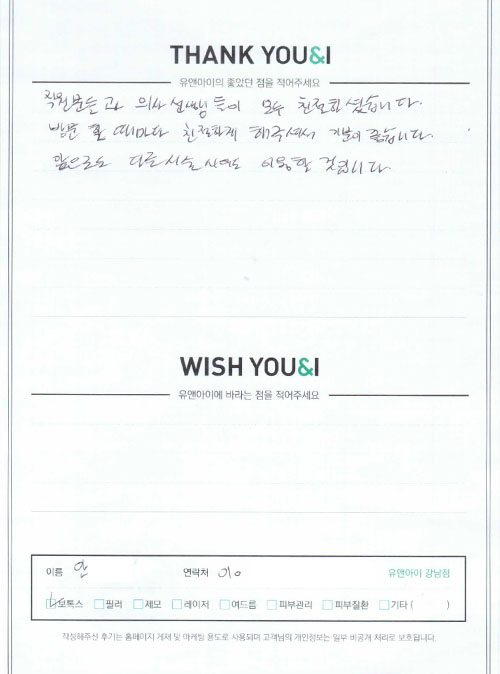 THANK YOU&I
유앤아이의 좋았던 점을 적어주세요
직원분들과 의사 선생님들이 모두 친절하셨습니다.
방문 할 때마다 친절하게 해주셔서 기분이 좋습니다.
앞으로도 다른시술 시에도 이용할 것입니다
WISH YOU&I
유앤아이에 바라는 점을 적어주세요
이름 안 연락처 010 유앤아이 강남점
보톡스 필러 제모 레이저 여드름 피부관리 피부질환 기타 ( )
작성해주신 후기는 홈페이지 게재 및 마케팅 용도로 사용되며 고객님의 개인정보는 일부 비공개 처리로 보호됩니다.